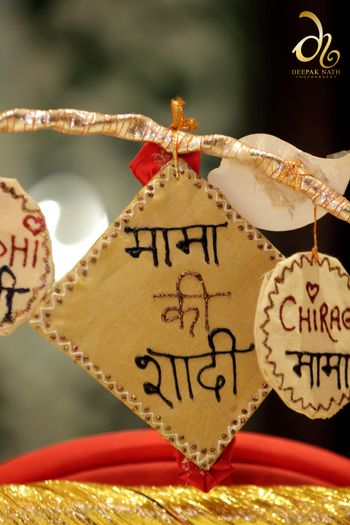 DEEPAK NATH
PHOTOGRAPHY
DHI
मामा
की
शादी
CHIRAG
मामा